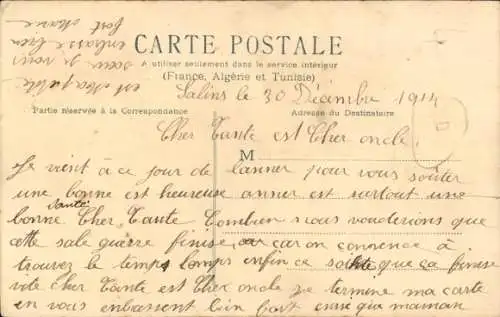 CARTE POSTALE
A utiliser seulement dans le service intérieur
(France, Algérie et Tunisie)
Salins le 30 Décembre 1914
Partie réservée à la Correspondance
Adresse du Destinataire
Cher Tante est Cher oncle
M
Je vient à ce jour de lanner pour vous souiter
une bonne est heureuse anner est surtout une
bonne santé Cher Tante Combien nous vouderions que
cette sale guerre finise car on conmence à
trouvez le temps lomps enfin ce que ça finise
vite cher Tante est Cher oncle je termine ma carte
en vous enbrassent bien fort que maman
est
vous
enbrasse bien
fort